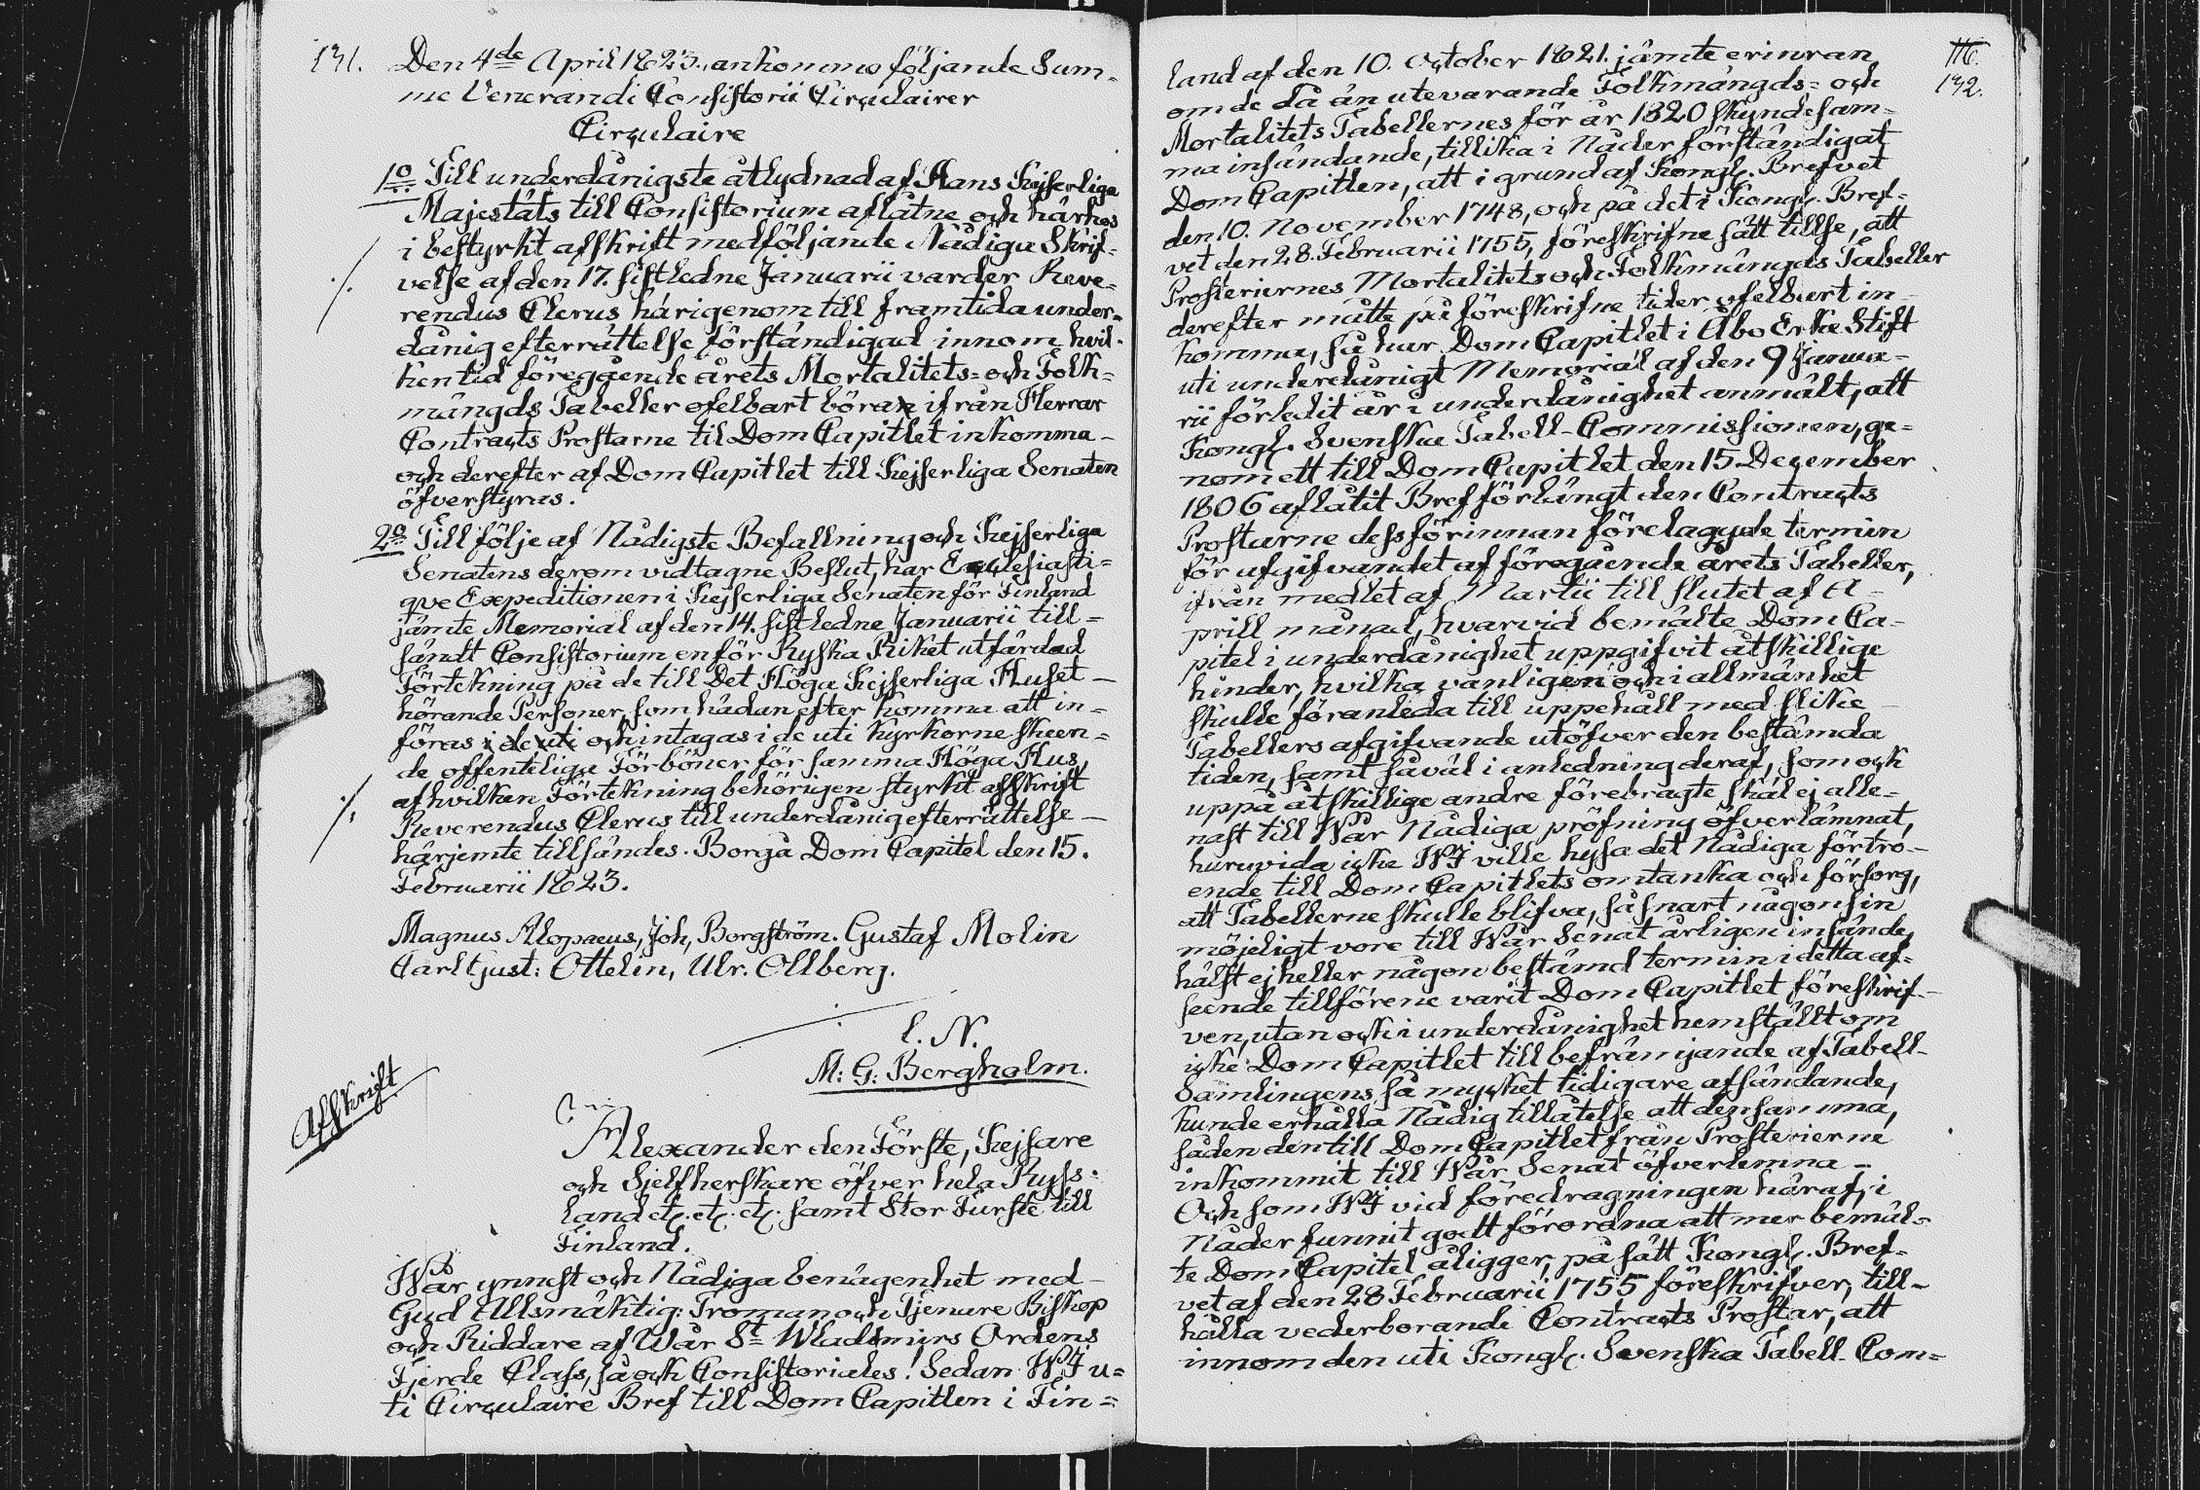 191.
Den 4de April 1823. ankommo följande Sum-
me Venerandi Consistorii Circulairer
Circulaire
1o Till underdånigste åtlydnad af Hans Kejserliga
Majestäts till Consistorium aflåtne och härhos
i bestyrkt afskrift medföljande Nådiga Skrif-
velse af den 17. sistledne Januarii varder Reve-
rendus Clerus härigenom till framtida under-
dånig efterrättelse förständigad innom hvil-
ken tid föregående årets Mortalitets= och Folk=
mängds Tabeller ofelbart böra ifrån Herrar
Contracts Prostarne til Dom Capitlet inkomma -
och derefter af Dom Capitlet till Kejserliga Senaten
öfverstyras.
2o Till följe af Nådigste Befallning och Kejserliga
Senatens derom vidtagne Beslut, har Ecclesiasti=
que Expeditionen i Kejserliga Senaten för Finland
jämte Memorial af den 14. sistledne Januarii till=
sändt Consistorium en för Ryska Riket utfärdad
Förtekning på de till Det Höga Kejserliga Huset -
hörande Personer, som hädanefter komma att in=
föras i de uti och intagas i de uti Kyrkorne skeen=
de offenteliga Förböner för samma Höga Hus,
af hvilken Förtekning behörigen styrkt afskrift
Reverendus Clerus till underdånig efterrättelse -
härjemte tillsändes. Borgå Dom Capitel den 15.
Februarii 1823.
Magnus Alopaeus, Joh, Borgström. Gustaf Molin
Carl Gust: Ottelin, Ulr. Ollberg.
M: G: Bergholm.
Afskrift
Alexander den Förste, Kejsare
och Sjelfherskare öfver hela Ryss-
land etc. etc. etc. samt Stor Furste till
Finland.
Wår ynnest och Nådiga benägenhet med -
Gud Allsmäktig: Troman och Tjenare Biskop
och Riddare af Wår St Wladimirs Ordens
Fjerde Class, så ock Consistoriales! Sedan WI u=
ti Circulaire Bref till Dom Capitlen i Fin=
192.
land af den 10. October 1821. jämte erinran
om de då än utevarande Folkmängds= och
Mortalitets Tabellernes för år 1820 skyndesam=
ma insändande, tillika i Nåder förständigat
Dom Capitlen, att i grund af Kongl. Brefvet
den 10. November 1748, och på det i Kongl. Bref=
vet den 28. Februarii 1755, föreskrifne sätt tillse, att
Prosteriernes Mortalitets och Folkmängds Tabeller
derefter måtte på föreskrifne tider ofelbart in-
komma, så har Dom Capitlet i Åbo Erke Stift
uti underdånigt Memorial af den 9 Janua=
rii förledit år i underdånighet anmält, att
Kongl. Svenska Tabell-Commissionen, ge=
nom ett till Dom Capitlet den 15 December
1806 aflåtit Bref förlängt den Contracts
Prostarne dessförinnan förelagde termin
för afgifvandet af föregående årets Tabeller,
ifrån medlet af Martii till slutet af A-
prill månad, hvarvid bemälte Dom Ca-
pitel i underdånighet uppgifvit åtskillige
hinder, hvilka vanligen och i allmänhet
skulle föranleda till uppehåll med slike
Tabellers afgifvande utöfver den bestämda
tiden, samt såväl i anledning deraf, som ock
uppå åtskillige andre förebragte skäl ej alle=
nast till Wår Nådiga pröfning öfverlämnat,
huruvida icke WI ville hysa det Nådiga förtro-
ende till Dom Capitlets omtanka och försorg,
att Tabellerne skulle blifva, så snart någonsin
möjeligt vore till Wår Senat årligen insände,
hälst ej heller någon bestämd termin i detta af=
seende tillförene varit Dom Capitlet föreskrif-
ven, utan ock i underdånighet hemställt om
icke Dom Capitlet till befrämjande af Tabell-
Samlingens så mycket tidigare afsändande,
kunde erhålla Nådig tillåtelse att densamma,
sådan den till Dom Capitlet från Prosterierne
inkommit till Wår Senat öfverlemna -
Och som WI vid föredragningen häraf, i
Nåder funnit godt förordna att mer bemäl=
te Dom Capitel åligger, på sätt Kongl. Bref=
vet af den 28 Februarii 1755 föreskrifver, till-
hålla vederborande Contracts Prostar, att
innom den uti Kongl. Svenska Tabell-Com=